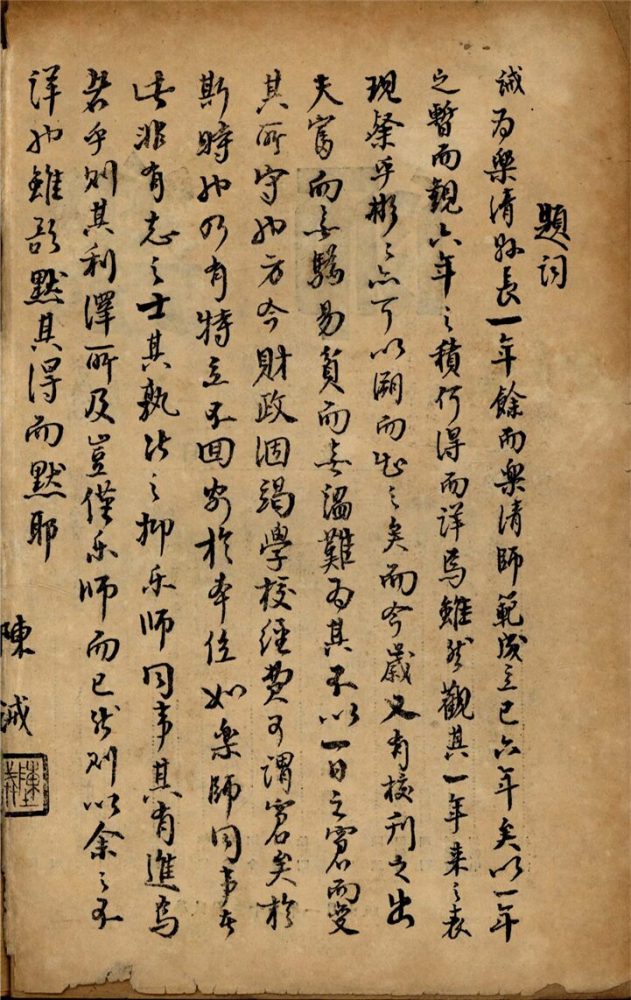 題詞
誠為樂清縣長一年餘而樂清師範成立已六年矣以一年
之暫而觀六年之積何得而詳焉雖然觀其一年來之表
現粲乎彬之亦可以溯而知之矣而今歲又有校刊之出
夫富而無驕易貧而無諂難為其不以一日之窘而変
其所守也方今財政涸竭學校經費可謂窘矣於
斯時也乃有特立不回安於本位如樂師同事者
此非有志之士其孰能之抑乐師同事其有進焉
者乎則其利澤所及豈僅乐師而已然則以余之不
詳也雖欲默其得而默耶
陳誠